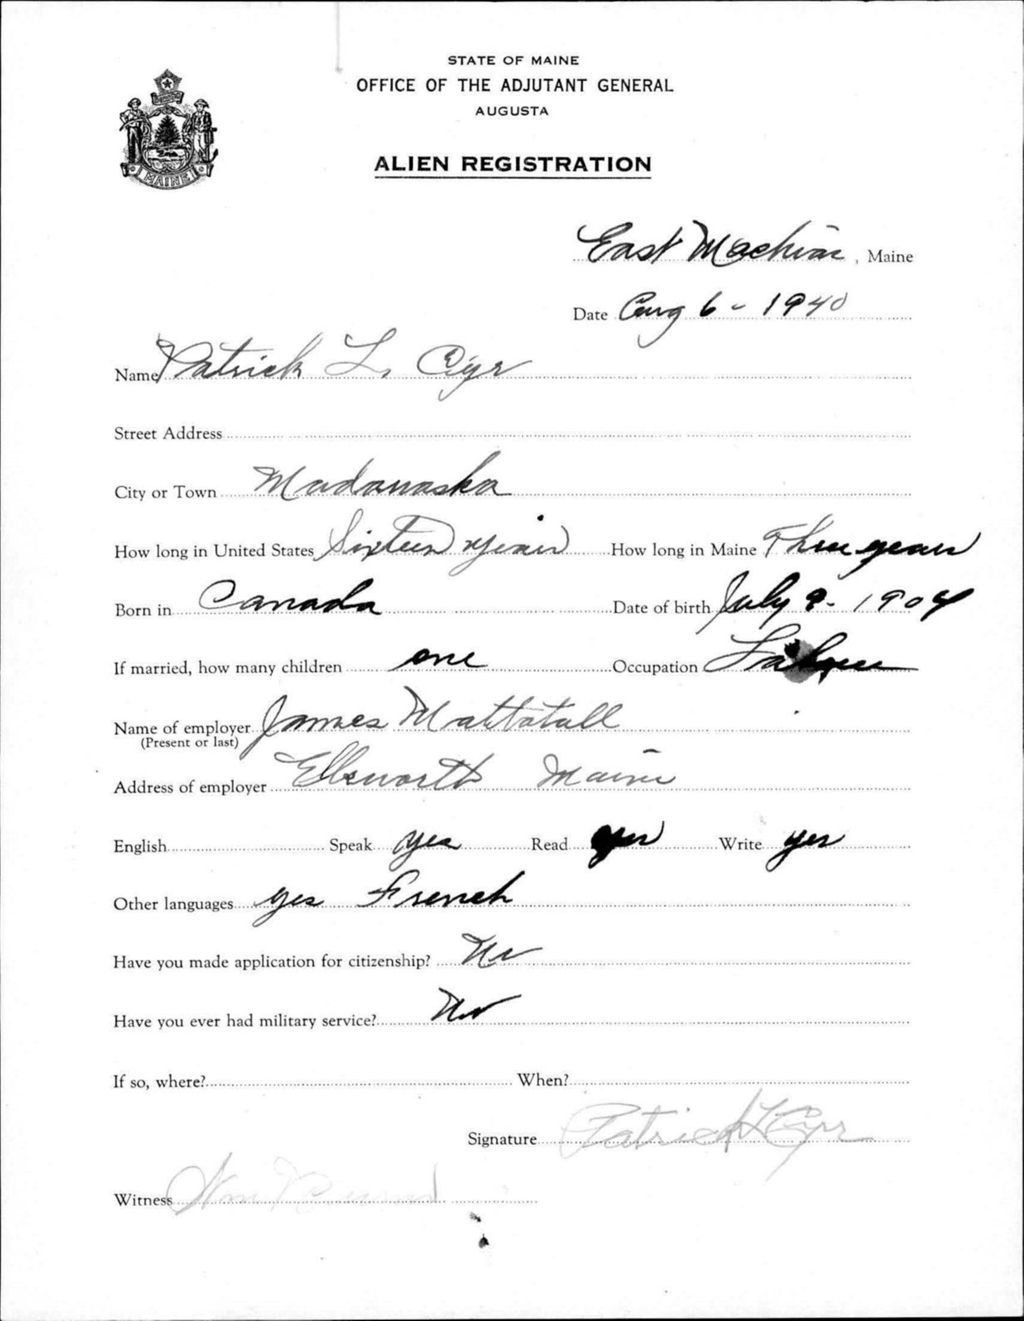 STATE OF MAINE
OFFICE OF THE ADJUTANT GENERAL
AUGUSTA
MAINE
ALIEN REGISTRATION
East Machias, Maine
Date Aug 6 - 1940
Name Patrick L. Cyr
Street Address
City or Town Madawaska
How long in United States Sixteen years How long in Maine Three years
Born in Canada Date of birth July 9 - 1904
If married, how many children one Occupation Laborer
Name of employer James Mattatall
(Present or last)
Address of employer Ellsworth Maine
English Speak yes Read yes Write yes
Other languages yes French
Have you made application for citizenship? No
Have you ever had military service? No
If so, where? When?
Signature Patrick L Cyr
Witness Wm